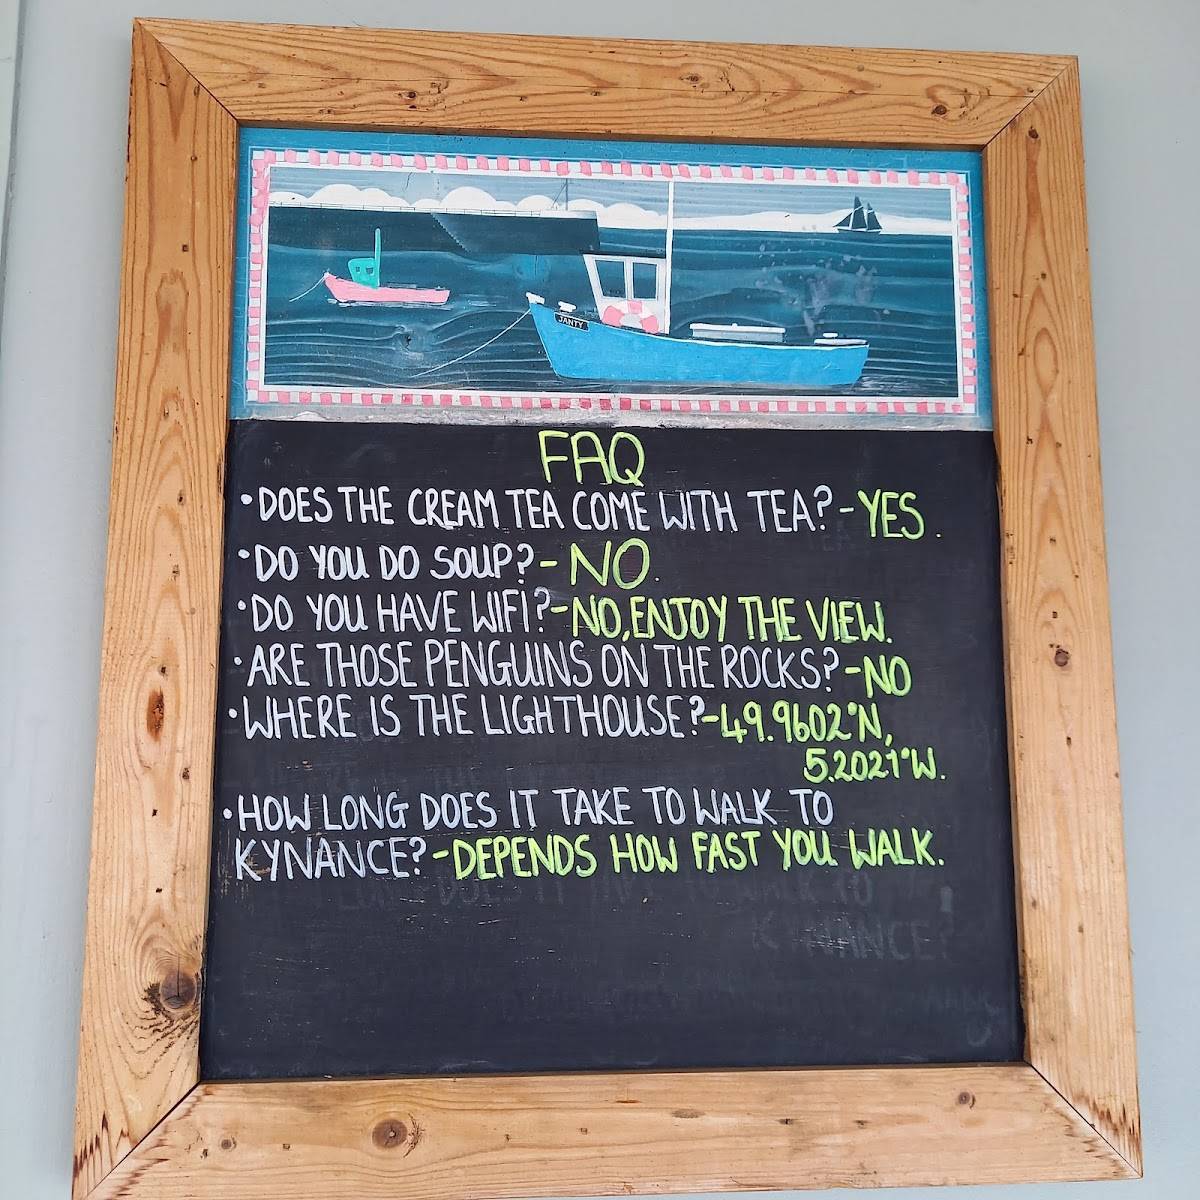 JANTY
FAQ
•DOES THE CREAM TEA COME WITH TEA?-YES.
•DO YOU DO SOUP?-NO.
•DO YOU HAVE WIFI?-NO, ENJOY THE VIEW.
•ARE THOSE PENGUINS ON THE ROCKS?-NO
•WHERE IS THE LIGHTHOUSE?-49.9602°N,
5.2021°W.
•HOW LONG DOES IT TAKE TO WALK TO
KYNANCE?-DEPENDS HOW FAST YOU WALK.
KYNANCE?